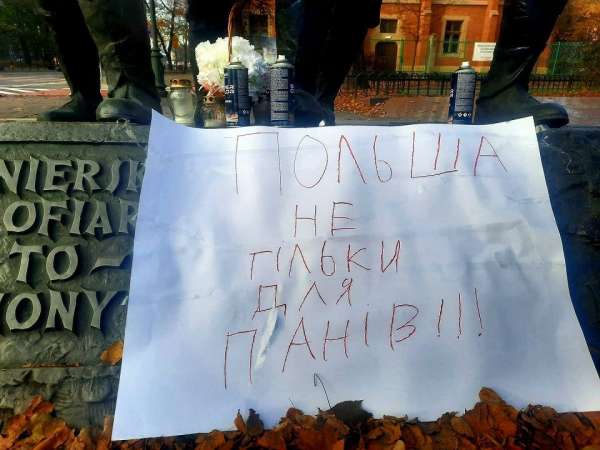 ПОЛЬША
НЕ
ТІЛЬКИ
ДЛЯ
ПАНІВ!!!
NIERSK
OFIAR
TO –
KONY